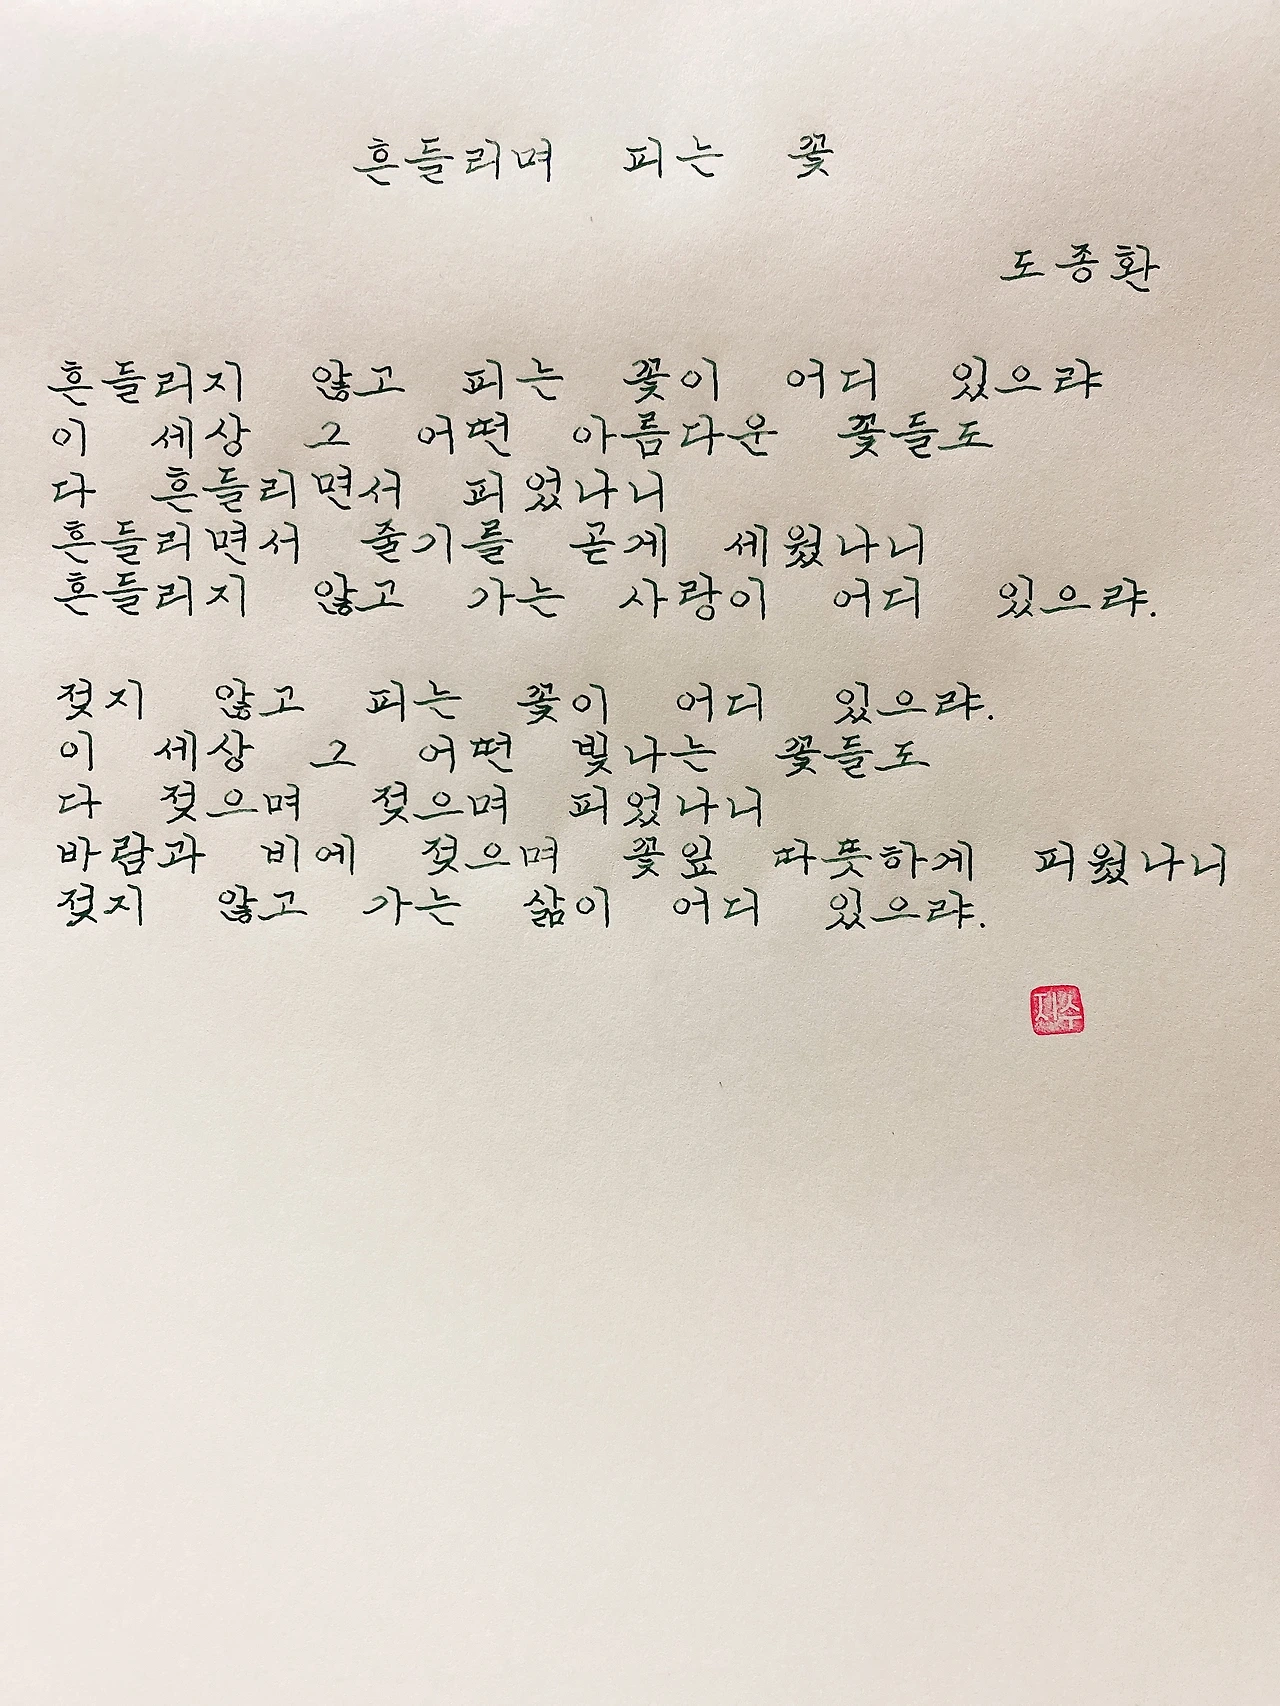 흔들리며 피는 꽃
도종환
흔들리지 않고 피는 꽃이 어디 있으랴
이 세상 그 어떤 아름다운 꽃들도
다 흔들리면서 피었나니
흔들리면서 줄기를 곧게 세웠나니
흔들리지 않고 가는 사랑이 어디 있으랴.
젖지 않고 피는 꽃이 어디 있으랴.
이 세상 그 어떤 빛나는 꽃들도
다 젖으며 젖으며 피었나니
바람과 비에 젖으며 꽃잎 따뜻하게 피웠나니
젖지 않고 가는 삶이 어디 있으랴.